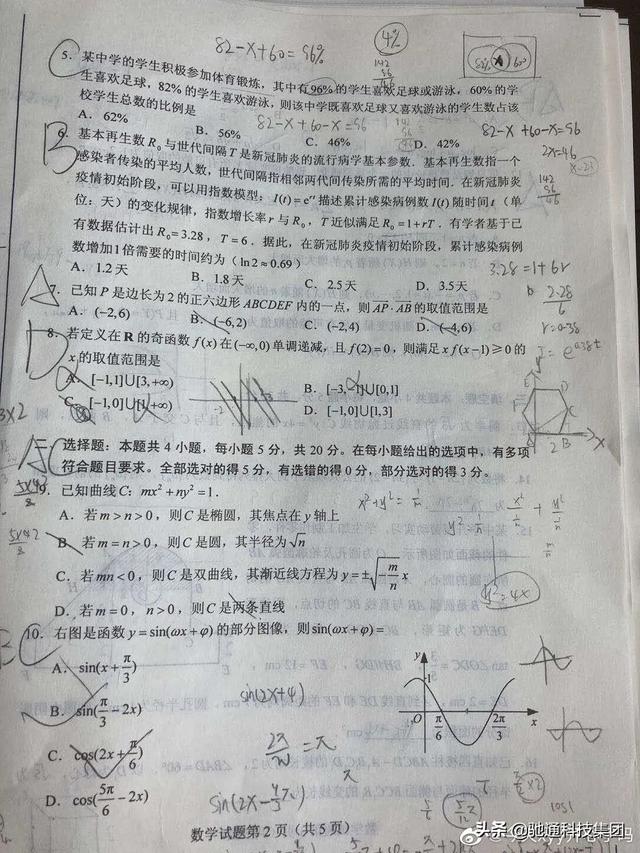 82-x+60=96%
4%
5. 某中学的学生积极参加体育锻炼,其中有96%的学生喜欢足球或游泳,60%的学
生喜欢足球,82%的学生喜欢游泳,则该中学既喜欢足球又喜欢游泳的学生数占该
校学生总数的比例是
A. 62% B. 56% C. 46% D. 42%
82-x+60-x=96
82-x+60-x=96
2x=46
142
96
46
B
6. 基本再生数R₀与世代间隔T是新冠肺炎的流行病学基本参数.基本再生数指一个
感染者传染的平均人数,世代间隔指相邻两代间传染所需的平均时间.在新冠肺炎
疫情初始阶段,可以用指数模型:I(t)=eʳᵗ描述累计感染病例数I(t)随时间t(单
位:天)的变化规律,指数增长率r与R₀,T近似满足R₀=1+rT.有学者基于已
有数据估计出R₀=3.28,T=6.据此,在新冠肺炎疫情初始阶段,累计感染病例
数增加1倍需要的时间约为(ln2≈0.69)
A. 1.2天 B. 1.8天 C. 2.5天 D. 3.5天
3.28=1+6r
2.28
6
r=0.38
A
7. 已知P是边长为2的正六边形ABCDEF内的一点,则AP·AB的取值范围是
A. (-2,6) B. (-6,2) C. (-2,4) D. (-4,6)
D
8. 若定义在R的奇函数f(x)在(-∞,0)单调递减,且f(2)=0,则满足xf(x-1)≥0的
x的取值范围是
A. [-1,1]∪[3,+∞) B. [-3,-1]∪[0,1]
C. [-1,0]∪[1,+∞) D. [-1,0]∪[1,3]
选择题:本题共4小题,每小题5分,共20分。在每小题给出的选项中,有多项
符合题目要求。全部选对的得5分,有选错的得0分,部分选对的得3分。
9. 已知曲线C:mx²+ny²=1.
A. 若m>n>0,则C是椭圆,其焦点在y轴上
B. 若m=n>0,则C是圆,其半径为√n
C. 若mn<0,则C是双曲线,其渐近线方程为y=±√(-m/n)x
D. 若m=0,n>0,则C是两条直线
y²=4x
10. 右图是函数y=sin(ωx+φ)的部分图像,则sin(ωx+φ)=
A. sin(x+π/3)
B. sin(π/3-2x)
C. cos(2x+π/6)
D. cos(5π/6-2x)
y
1
O π/6 2π/3 x
数学试题第2页(共5页)
头条@驰通科技集团